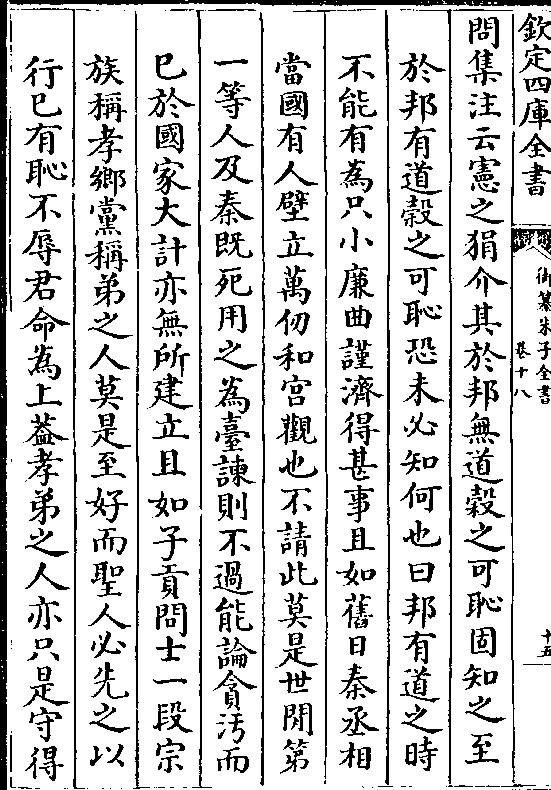 欽定四庫全書
御纂朱子全書
卷十八
十五
問集注云憲之狷介其於邦無道穀之可恥固知之至
於邦有道穀之可恥恐未必知何也曰邦有道之時
不能有為只小廉曲謹濟得甚事且如舊日秦丞相
當國有人壁立萬仞和宫觀也不請此莫是世間第
一等人及秦既死用之為臺諫則不過能論貪汚而
已於國家大計亦無所建立且如子貢問士一段宗
族稱孝鄉黨稱弟之人莫是至好而聖人必先之以
行已有恥不辱君命為上葢孝弟之人亦只是守得